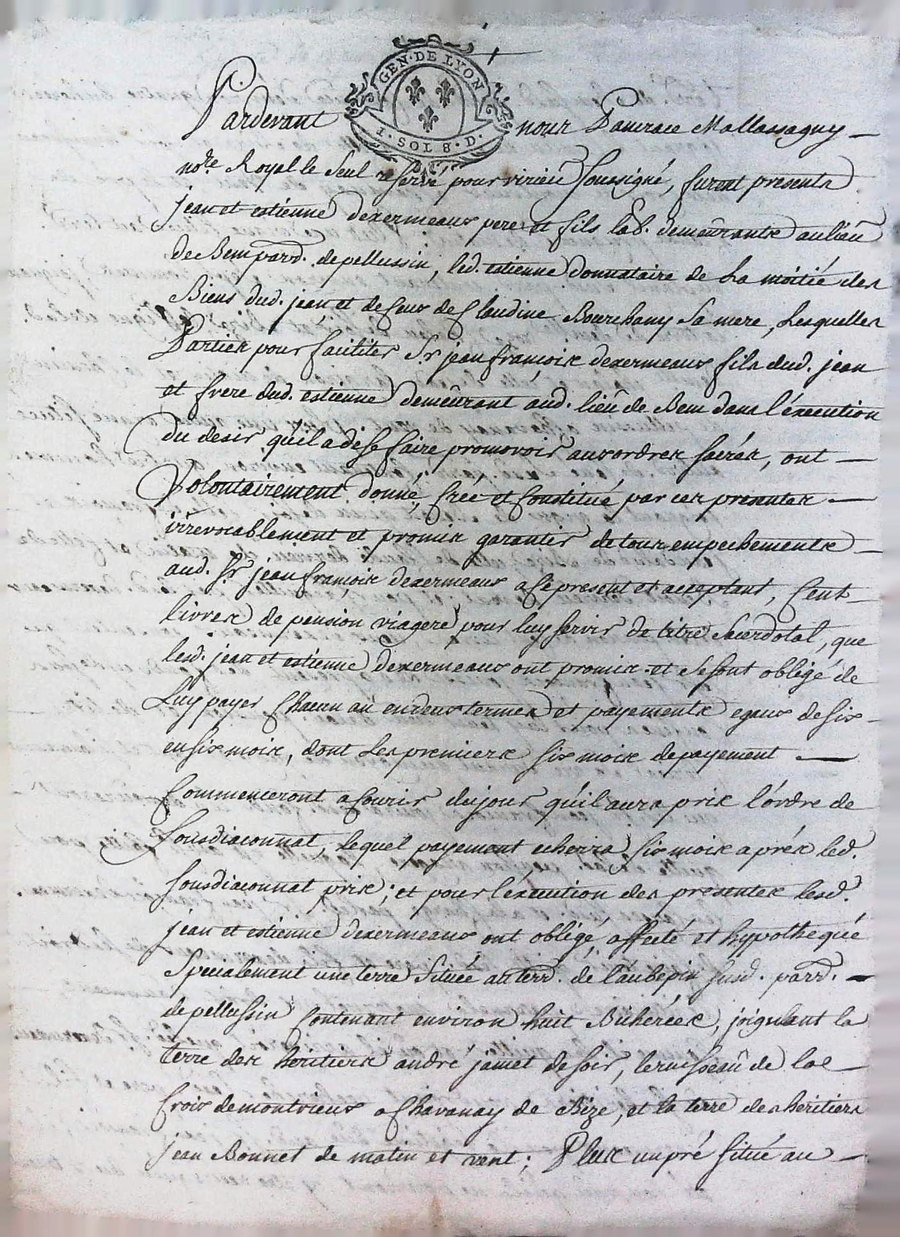 GEN · DE LYON
1 · SOL 8 · D ·
Pardevant nous Pancrace Mallassagny
no.re Royal le Seul reservé pour virieu Soussigné, furent presents
jean et estienne dexermeaux pere et fils lab. demeurants au lieu
de Bem parr. de pellussin, led. estienne donnataire de La moitié des
Biens dud. jean et de Ceux de Claudine Bourchany Sa mere, Lesquelles
Parties pour faciliter Sr. jean françois dexermeaux fils dud. jean
et frere dud. estienne demeurant aud. lieu de Bem dans l'éxécution
du desir qu'il a de se faire promovoir aux ordres sacrés, ont
Volontairement donné, Créé et Constitué par ces presentes
irrevocablement et promis garantir de tous empechements
aud. Sr. jean françois dexermeaux a Ce present et acceptant, Cent
livres de pension viagere pour luy servir de titre Sacerdotal, que
lesd. jean et estienne dexermeaux ont promis et Se sont obligé de
Luy payer Chacun an en deux termes et payements egaux de six
en six mois, dont Les premiers six mois de payement
Commenceront a Courir du jour qu'il aura pris l'ordre de
Sousdiaconnat, Lequel payement echerra six mois aprés led.
Sousdiaconnat pris; et pour l'éxécution des presentes lesd.
jean et estienne dexermeaux ont obligé, affecté et hypothequé
Specialement une terre Située au terr. de l'aubepin susd. parr.
de pellussin Contenant environ huit Bicherées, joignant la
terre des heritiers andré jamet de soir, le ruisseau de la
Croix de montvieux a Chavanay de Bize, et la terre des heritiers
jean Bonnet de matin et vent; Plus un pré situé au